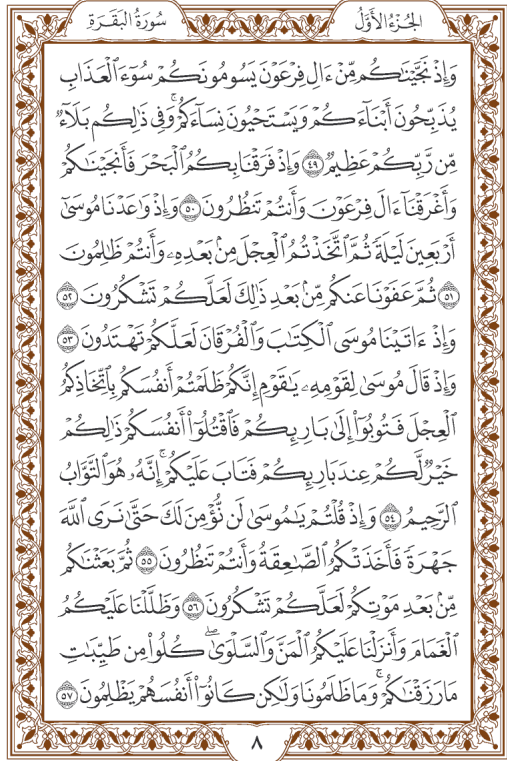 الجُزْءُ الأَوَّلُ
سُورَةُ البَقَرَةِ
وَإِذْ نَجَّيْنَٰكُم مِّنْ ءَالِ فِرْعَوْنَ يَسُومُونَكُمْ سُوٓءَ ٱلْعَذَابِ
يُذَبِّحُونَ أَبْنَآءَكُمْ وَيَسْتَحْيُونَ نِسَآءَكُمْۚ وَفِى ذَٰلِكُم بَلَآءٌ
مِّن رَّبِّكُمْ عَظِيمٌ ٤٩ وَإِذْ فَرَقْنَا بِكُمُ ٱلْبَحْرَ فَأَنجَيْنَٰكُمْ
وَأَغْرَقْنَآ ءَالَ فِرْعَوْنَ وَأَنتُمْ تَنظُرُونَ ٥٠ وَإِذْ وَٰعَدْنَا مُوسَىٰٓ
أَرْبَعِينَ لَيْلَةً ثُمَّ ٱتَّخَذْتُمُ ٱلْعِجْلَ مِنۢ بَعْدِهِۦ وَأَنتُمْ ظَٰلِمُونَ
٥١ ثُمَّ عَفَوْنَا عَنكُم مِّنۢ بَعْدِ ذَٰلِكَ لَعَلَّكُمْ تَشْكُرُونَ ٥٢
وَإِذْ ءَاتَيْنَا مُوسَى ٱلْكِتَٰبَ وَٱلْفُرْقَانَ لَعَلَّكُمْ تَهْتَدُونَ ٥٣
وَإِذْ قَالَ مُوسَىٰ لِقَوْمِهِۦ يَٰقَوْمِ إِنَّكُمْ ظَلَمْتُمْ أَنفُسَكُم بِٱتِّخَاذِكُمُ
ٱلْعِجْلَ فَتُوبُوٓا۟ إِلَىٰ بَارِئِكُمْ فَٱقْتُلُوٓا۟ أَنفُسَكُمْ ذَٰلِكُمْ
خَيْرٌ لَّكُمْ عِندَ بَارِئِكُمْ فَتَابَ عَلَيْكُمْۚ إِنَّهُۥ هُوَ ٱلتَّوَّابُ
ٱلرَّحِيمُ ٥٤ وَإِذْ قُلْتُمْ يَٰمُوسَىٰ لَن نُّؤْمِنَ لَكَ حَتَّىٰ نَرَى ٱللَّهَ
جَهْرَةً فَأَخَذَتْكُمُ ٱلصَّٰعِقَةُ وَأَنتُمْ تَنظُرُونَ ٥٥ ثُمَّ بَعَثْنَٰكُم
مِّنۢ بَعْدِ مَوْتِكُمْ لَعَلَّكُمْ تَشْكُرُونَ ٥٦ وَظَلَّلْنَا عَلَيْكُمُ
ٱلْغَمَامَ وَأَنزَلْنَا عَلَيْكُمُ ٱلْمَنَّ وَٱلسَّلْوَىٰۖ كُلُوا۟ مِن طَيِّبَٰتِ
مَا رَزَقْنَٰكُمْۚ وَمَا ظَلَمُونَا وَلَٰكِن كَانُوٓا۟ أَنفُسَهُمْ يَظْلِمُونَ ٥٧
٨